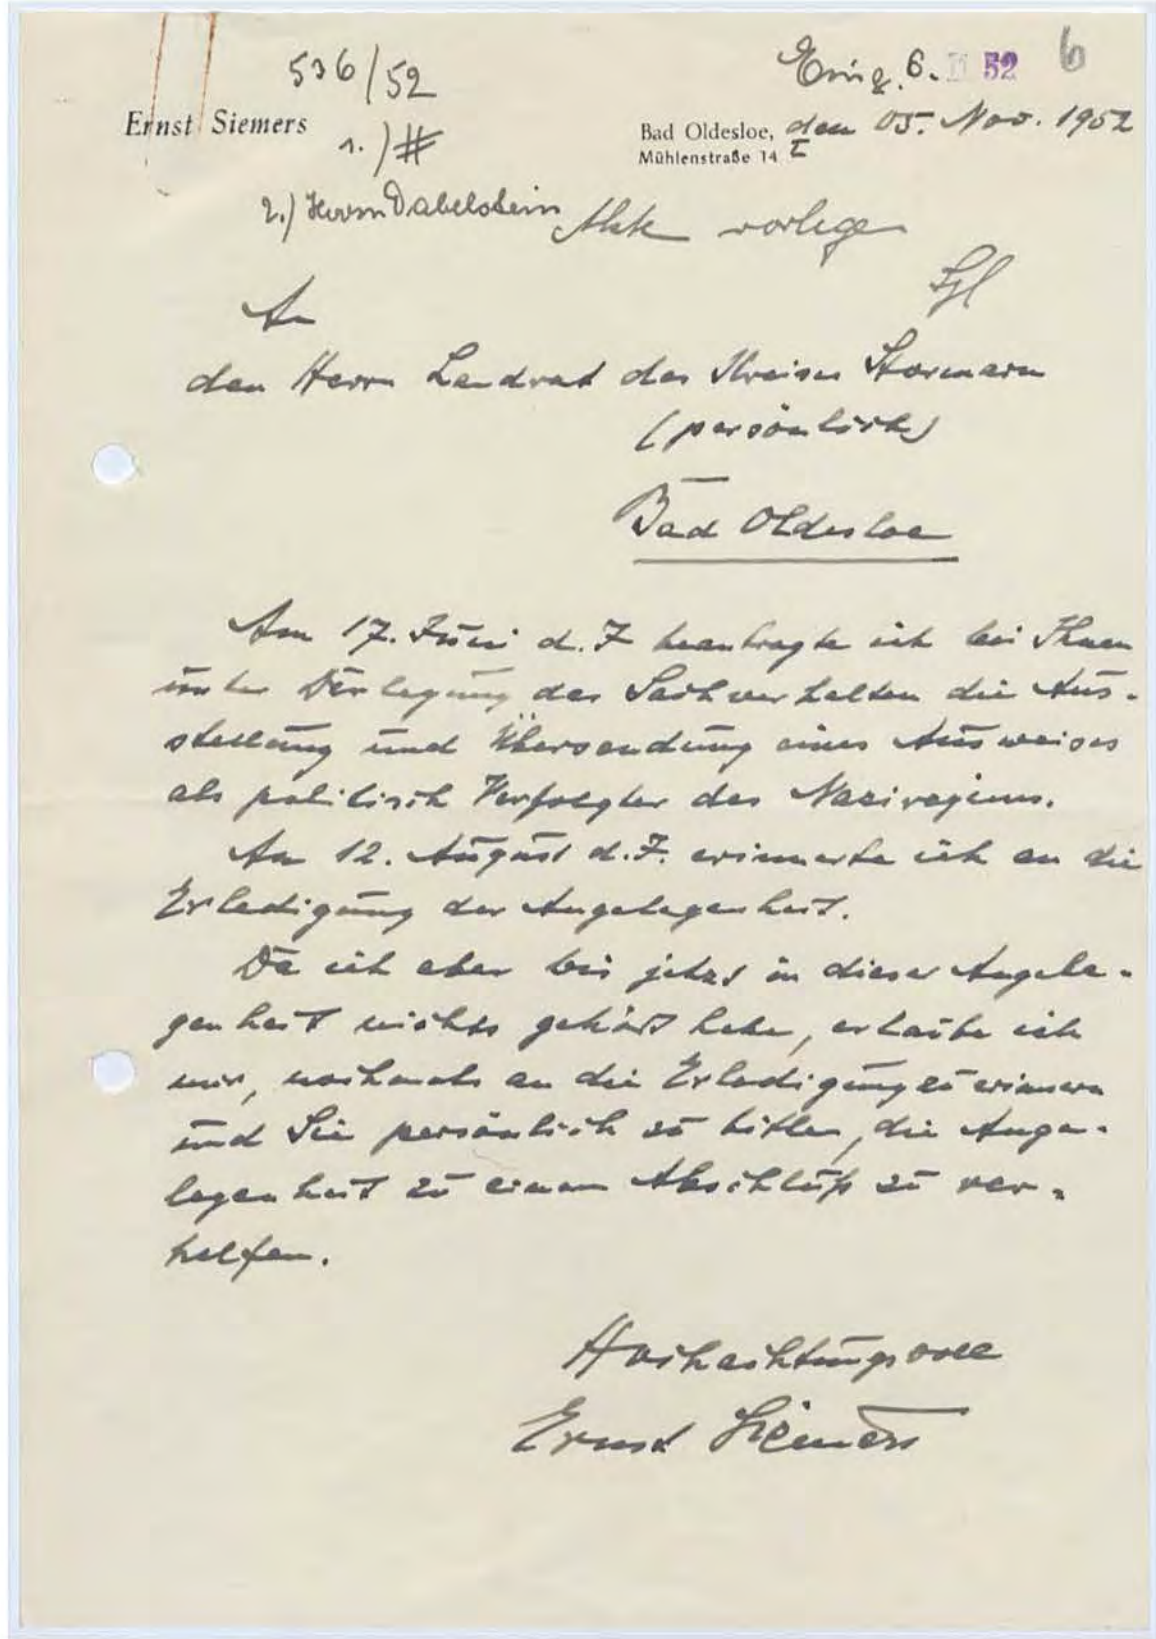 536/52
Eing. 6. 52 6
Ernst Siemers
1.) #
Bad Oldesloe, den 05. Nov. 1952
Mühlenstraße 14 I
2.) Herrn Dabelstein Akte vorlegen
An
den Herrn Landrat des Kreises Stormarn
(persönlich)
Bad Oldesloe
Am 17. Juni d. J. beantragte ich bei Ihnen
unter Darlegung des Sachverhaltes die Aus-
stellung und Übersendung eines Ausweises
als politisch Verfolgter des Naziregimes.
Am 12. August d. J. erinnerte ich an die
Erledigung der Angelegenheit.
Da ich aber bis jetzt in dieser Angele-
genheit nichts gehört habe, erlaube ich
mir, nochmals an die Erledigung zu erinnern
und Sie persönlich zu bitten, die Ange-
legenheit zu einem Abschluß zu ver-
helfen.
Hochachtungsvoll
Ernst Siemers